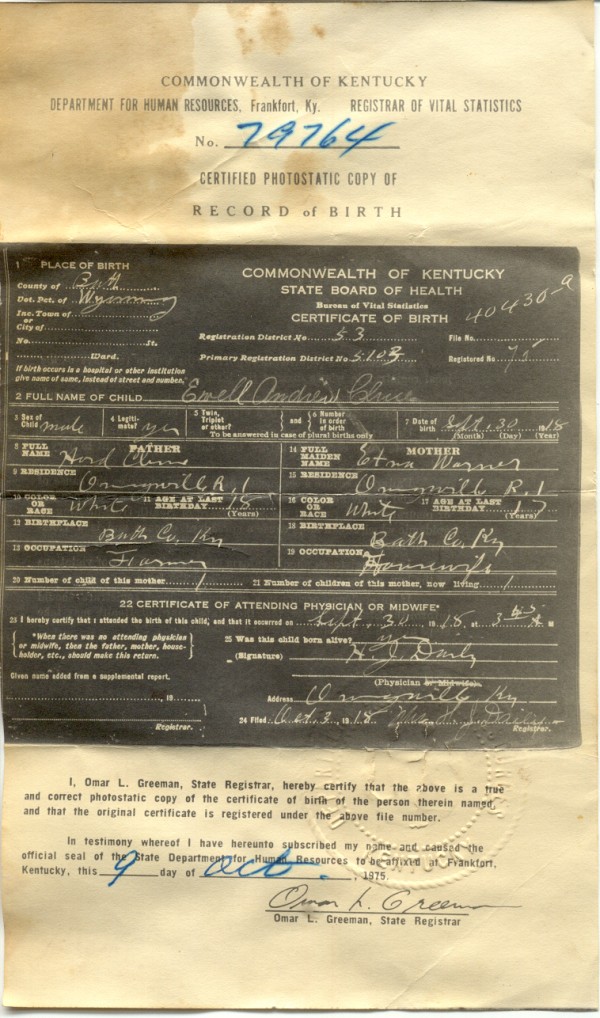 COMMONWEALTH OF KENTUCKY
DEPARTMENT FOR HUMAN RESOURCES, Frankfort, Ky. REGISTRAR OF VITAL STATISTICS
No. 79764
CERTIFIED PHOTOSTATIC COPY OF
RECORD of BIRTH
1 PLACE OF BIRTH
County of Bath
Vot. Pct. of Wyoming
Inc. Town of
or
City of
No. St.
Ward.
If birth occurs in a hospital or other institution
give name of same, instead of street and number.
COMMONWEALTH OF KENTUCKY
STATE BOARD OF HEALTH
Bureau of Vital Statistics
CERTIFICATE OF BIRTH
40430-a
Registration District No. 53 File No.
Primary Registration District No. 5103 Registered No. 75
2 FULL NAME OF CHILD Ewell Andrew Cline
3 Sex of Child male 4 Legitimate? yes 5 Twin, Triplet or other? and 6 Number in order of birth 7 Date of birth Sept. 30 1918
To be answered in case of plural births only (Month) (Day) (Year)
FATHER
8 FULL NAME Hord Cline
9 RESIDENCE R. 1
10 COLOR OR RACE White 11 AGE AT LAST BIRTHDAY 18 (Years)
12 BIRTHPLACE Bath Co. Ky
13 OCCUPATION Farmer
MOTHER
14 FULL MAIDEN NAME Etna Warner
15 RESIDENCE R. 1
16 COLOR OR RACE White 17 AGE AT LAST BIRTHDAY 17 (Years)
18 BIRTHPLACE Bath Co. Ky
19 OCCUPATION Housewife
20 Number of child of this mother 1 21 Number of children of this mother, now living 1
22 CERTIFICATE OF ATTENDING PHYSICIAN OR MIDWIFE*
23 I hereby certify that I attended the birth of this child, and that it occurred on Sept. 30 1918 at 3 M
*When there was no attending physician
or midwife, then the father, mother, house-
holder, etc., should make this return.
25 Was this child born alive? yes
(Signature) H. J. Daily
(Physician or Midwife)
Given name added from a supplemental report.
, 19
Registrar.
Address Ky
24 Filed Oct. 3, 1918
Registrar.
I, Omar L. Greeman, State Registrar, hereby certify that the above is a true
and correct photostatic copy of the certificate of birth of the person therein named,
and that the original certificate is registered under the above file number.
In testimony whereof I have hereunto subscribed my name and caused the
official seal of the State Department for Human Resources to be affixed at Frankfort,
Kentucky, this 9 day of Oct. , 1975.
Omar L. Greeman
Omar L. Greeman, State Registrar